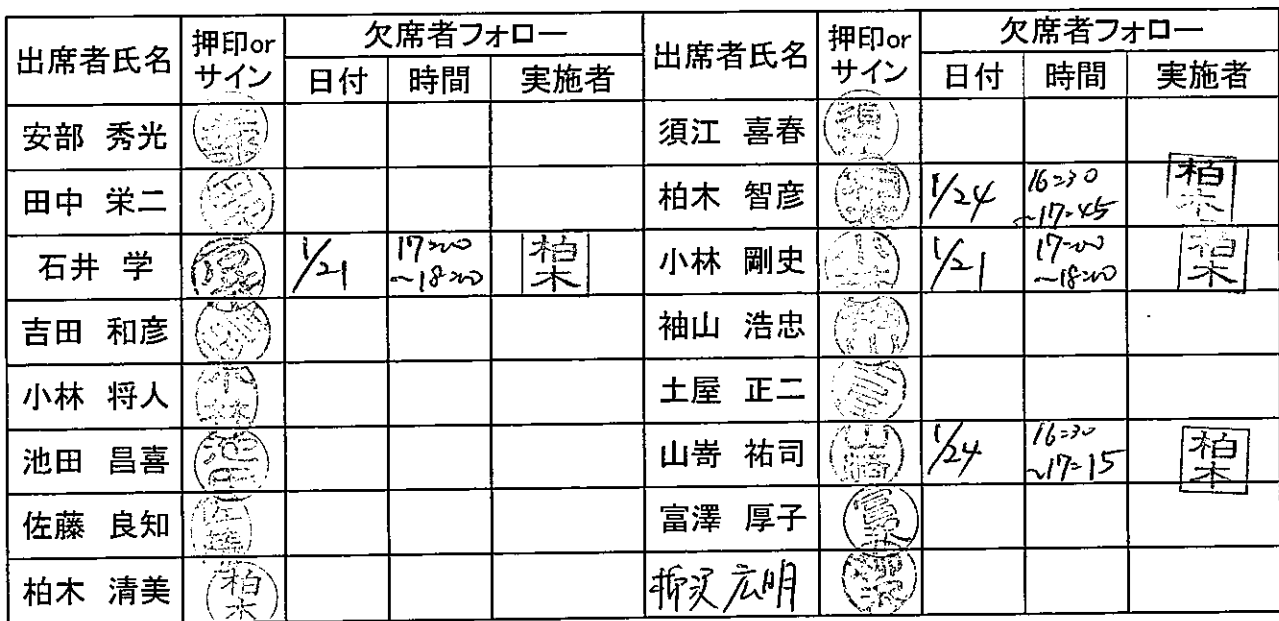 出席者氏名 押印or サイン 欠席者フォロー 出席者氏名 押印or サイン 欠席者フォロー
日付 時間 実施者 日付 時間 実施者
安部 秀光 須江 喜春
田中 栄二 柏木 智彦 1/24 16:30 ~17:45 柏木
石井 学 1/21 17:00 ~18:00 柏木 小林 剛史 小林 1/21 17:00 ~18:00 柏木
吉田 和彦 袖山 浩忠
小林 将人 小林 土屋 正二
池田 昌喜 池田 山嵜 祐司 山嵜 1/24 16:30 ~17:15 柏木
佐藤 良知 佐藤 富澤 厚子
柏木 清美 柏木 柳沢 広明